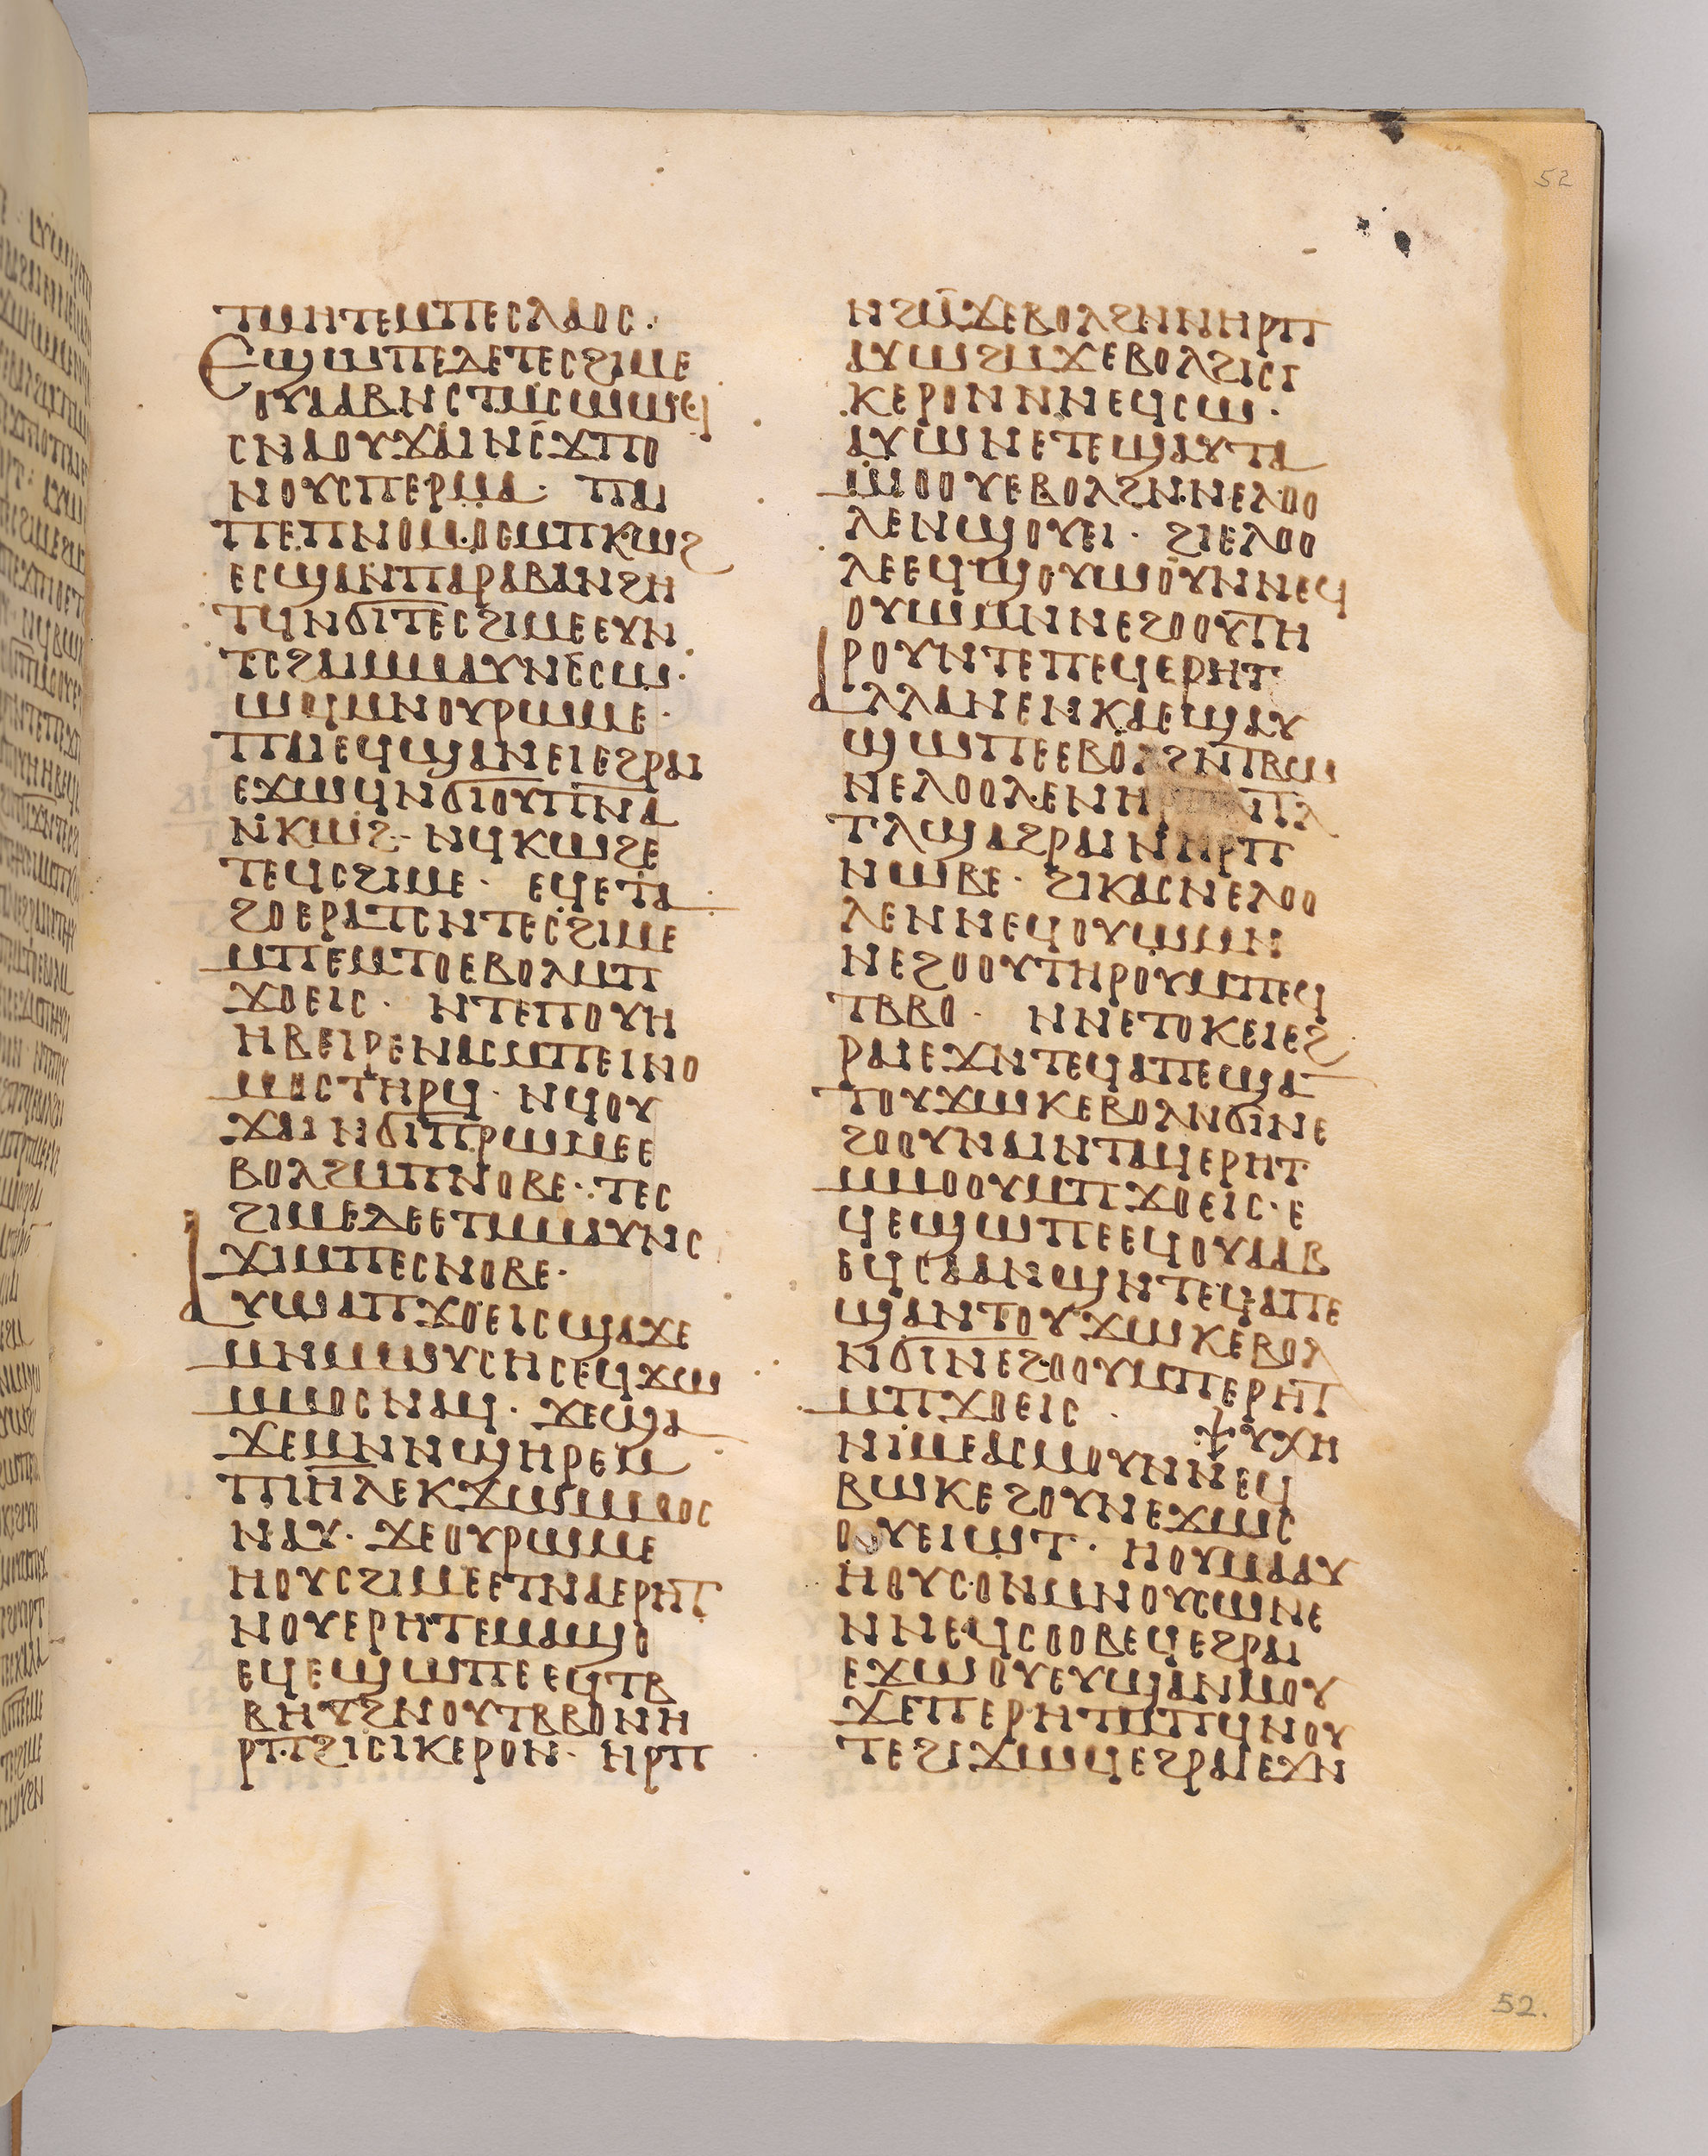 52
ⲧⲙⲏⲧⲉⲙⲡⲉⲥⲗⲁⲟⲥ·
Ⲉϣⲱⲡⲉⲇⲉⲧⲉⲥϩⲓⲙⲉ
ⲟⲩⲁⲁⲃ·ⲛⲥⲧⲙⲥⲱⲱϥ
ⲥⲛⲁⲟⲩϫⲁⲓⲛⲥϫⲡⲟ
ⲛⲟⲩⲥⲡⲉⲣⲙⲁ· ⲡⲁⲓ
ⲡⲉⲡⲛⲟⲙⲟⲥⲙⲡⲕⲱϩ
ⲉⲥϣⲁⲛⲡⲁⲣⲁⲃⲁⲛϩⲏ
ⲧϥⲛϭⲓⲧⲉⲥϩⲓⲙⲉⲉⲩⲛ
ⲧⲥϩⲁⲓⲙⲙⲁⲩⲛⲥⲥⲱ·
ⲱϥⲙⲛⲟⲩⲣⲱⲙⲉ·
ⲡⲁⲓⲉϥϣⲁⲛⲉⲓⲉϩⲣⲁⲓ
ⲉϫⲱϥⲛϭⲓⲟⲩⲡⲛⲁ
ⲛⲕⲱϩ· ⲛϥⲕⲱϩⲉ
ⲧⲉϥⲥϩⲓⲙⲉ· ⲉϥⲉⲧⲁ
ϩⲟⲉⲣⲁⲧⲥⲛⲧⲉⲥϩⲓⲙⲉ
ⲙⲡⲉⲙⲧⲟⲉⲃⲟⲗⲙⲡ
ϫⲟⲉⲓⲥ· ⲛⲧⲉⲡⲟⲩⲏ
ⲏⲃⲉⲓⲣⲉⲛⲁⲥⲙⲡⲉⲓⲛⲟ
ⲙⲟⲥⲧⲏⲣϥ· ⲛϥⲟⲩ
ϫⲁⲓⲛϭⲓⲡⲣⲱⲙⲉⲉ
ⲃⲟⲗϩⲙⲡⲛⲟⲃⲉ· ⲧⲉⲥ
ϩⲓⲙⲉⲇⲉⲉⲧⲙⲙⲁⲩⲛⲥ
ϫⲓⲙⲡⲉⲥⲛⲟⲃⲉ·
Ⲁⲩⲱⲁⲡϫⲟⲉⲓⲥϣⲁϫⲉ
ⲙⲛⲙⲱⲩⲥⲏⲥⲉϥϫⲱ
ⲙⲙⲟⲥⲛⲁϥ· ϫⲉϣⲁ
ϫⲉⲙⲛⲛϣⲏⲣⲉⲙ
ⲡⲓⲏⲗⲉⲕϫⲱⲙⲙⲟⲥ
ⲛⲁⲩ· ϫⲉⲟⲩⲣⲱⲙⲉ
ⲏⲟⲩⲥϩⲓⲙⲉⲉⲧⲛⲁⲉⲣⲏⲧ
ⲛⲟⲩⲉⲣⲏⲧⲉⲙⲁϣⲟ
ⲉϥⲉϣⲱⲡⲉⲉϥⲧⲃ
ⲃⲏⲩϩⲛⲟⲩⲧⲃⲃⲟⲛⲏ
ⲣⲡϩⲓⲥⲓⲕⲉⲣⲟⲛ· ⲏⲣⲡ
ⲛϩⲙϫⲉⲃⲟⲗϩⲛⲛⲏⲣⲡ
ⲁⲩⲱϩⲙϫⲉⲃⲟⲗϩⲓⲥⲓ
ⲕⲉⲣⲟⲛⲛⲛⲉϥⲥⲱ·
ⲁⲩⲱⲛⲉⲧⲉϣⲁⲩⲧⲁ
ⲙⲓⲟⲟⲩⲉⲃⲟⲗϩⲛⲛⲉⲗⲟⲟ
ⲗⲉⲛϣⲟⲩⲉⲓ· ϩⲓⲉⲗⲟⲟ
ⲗⲉⲉϥϣⲟⲩⲱⲟⲩⲛⲛⲉϥ
ⲟⲩⲱⲙⲛⲛⲉϩⲟⲟⲩⲧⲏ
ⲣⲟⲩⲛⲧⲉⲡⲉϥⲉⲣⲏⲧ
Ⲁⲗⲗⲁⲛⲉⲛⲕⲁⲉϣⲁⲩ
ϣⲱⲡⲉⲉⲃⲟⲗϩⲛⲧⲃⲱ
ⲛⲉⲗⲟⲟⲗⲉⲛⲏ
ⲧⲗϣⲁϩⲣⲁⲓⲛⲏⲣⲡ
ⲛⲱⲃⲉ· ϩⲓⲕⲁⲥⲛⲉⲗⲟⲟ
ⲗⲉⲛⲛⲉϥⲟⲩⲱⲙⲛ
ⲛⲉϩⲟⲟⲩⲧⲏⲣⲟⲩⲙⲡⲉϥ
ⲧⲃⲃⲟ· ⲛⲛⲉⲧⲟⲕⲉⲓⲉϩ
ⲣⲁⲓⲉϫⲛⲧⲉϥⲁⲡⲉϣⲁ
ⲧⲟⲩϫⲱⲕⲉⲃⲟⲗⲛϭⲓⲛⲉ
ϩⲟⲟⲩⲛⲁⲓⲛⲧⲁϥⲉⲣⲏⲧ
ⲙⲙⲟⲟⲩⲙⲡϫⲟⲉⲓⲥ·ⲉ
ϥⲉϣⲱⲡⲉⲉϥⲟⲩⲁⲁⲃ
ⲉϥⲥⲁⲁⲛϣⲛⲧⲉϥⲁⲡⲉ
ϣⲁⲛⲧⲟⲩϫⲱⲕⲉⲃⲟⲗ
ⲛϭⲓⲛⲉϩⲟⲟⲩⲙⲡⲉⲣⲏⲧ
ⲙⲡϫⲟⲉⲓⲥ· ⲯⲩⲭⲏ
ⲛⲓⲙⲉⲁⲥⲙⲟⲩⲛⲛⲉϥ
ⲃⲱⲕⲉϩⲟⲩⲛⲉϫⲱⲥ
ⲟⲩⲉⲓⲱⲧ· ⲏⲟⲩⲙⲁⲁⲩ
ⲏⲟⲩⲥⲟⲛⲙⲛⲟⲩⲥⲱⲛⲉ
ⲛⲛⲉϥⲥⲟⲟⲃⲉϥⲉϩⲣⲁⲓ
ⲉϫⲱⲟⲩⲉⲩϣⲁⲛⲙⲟⲩ
ϫⲉⲡⲉⲣⲏⲧⲙⲡϥⲛⲟⲩ
ⲧⲉϩⲓϫⲱϥⲉϩⲣⲁⲓⲉϫⲛ
52.